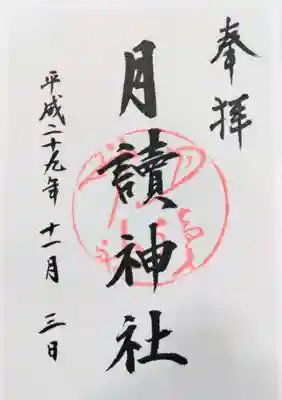 奉拝
月讀神社
平成二十九年 十一月 三日